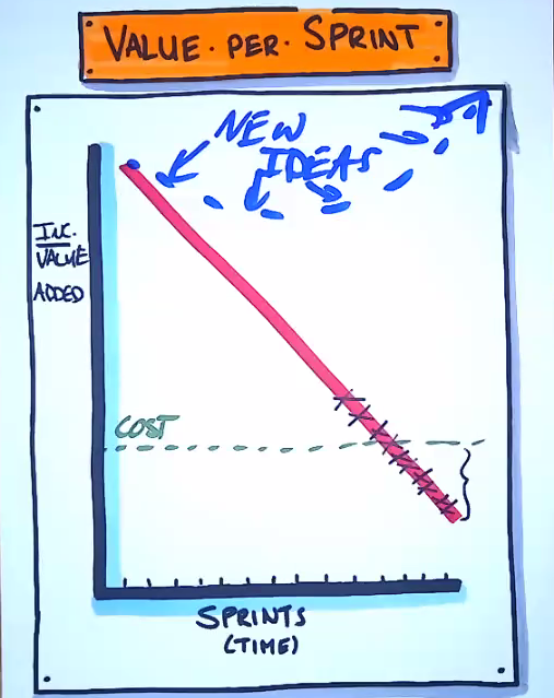 VALUE · PER · SPRINT
NEW
IDEAS
INC.
VALUE
ADDED
COST
SPRINTS
(TIME)